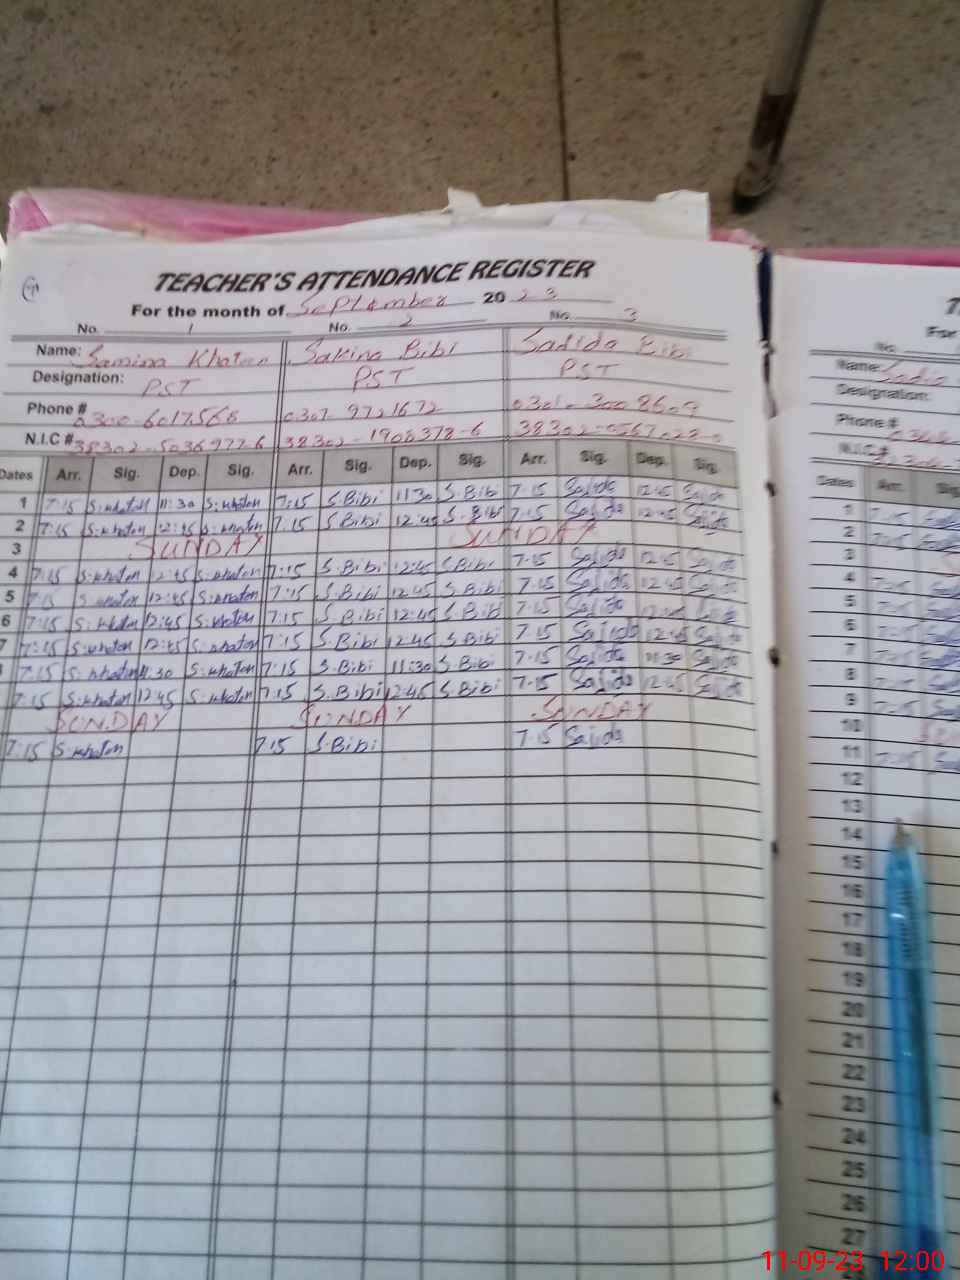 TEACHER'S ATTENDANCE REGISTER
For the month of September 2023
No. 1 No. 2 No. 3
Name: Samina Khatoon Sakina Bibi Sadida Bibi
Designation: PST PST PST
Phone # 0300-6017568 0307 9721672 0301-3008609
N.I.C # 38302-5036977-6 38302-1908378-6 38302-0567
Dates Arr. Sig. Dep. Sig. Arr. Sig. Dep. Sig. Arr. Sig. Dep. Sig.
1 7:15 S.khaton 11:30 S.khaton 7:15 S.Bibi 11:30 S.Bibi 7-15 Sajida 12:45 Sajida
2 7:15 S.khaton 12:45 S.khaton 7:15 S.Bibi 12:45 S.Bibi 7-15 Sajida 12:45 Sajida
3 SUNDAY SUNDAY
4 7:15 S.khaton 12:45 S.khaton 7:15 S.Bibi 12:45 S.Bibi 7-15 Sajida 12:45 Sajida
5 7:15 S.khaton 12:45 S.khaton 7:15 S.Bibi 12:45 S.Bibi 7-15 Sajida 12:45 Sajida
6 7:15 S.khaton 12:45 S.khaton 7:15 S.Bibi 12:45 S.Bibi 7-15 Sajida 12:45 Sajida
7 7:15 S.khaton 12:45 S.khaton 7:15 S.Bibi 12:45 S.Bibi 7-15 Sajida 12:45 Sajida
7:15 S.khaton 11:30 S.khaton 7:15 S.Bibi 11:30 S.Bibi 7-15 Sajida 11:30 Sajida
7:15 S.khaton 12:45 S.khaton 7:15 S.Bibi 12:45 S.Bibi 7-15 Sajida 12:45 Sajida
SUNDAY SUNDAY SUNDAY
7:15 S.khaton 7:15 S.Bibi 7-15 Sajida
For
No.
Name: Sadia
Designation:
Phone #
N.I.C #
Dates Arr. Sig.
1 7:15
2 7:15
3
4 7:15
5 7:15
6 7:15
7 7:15
8 7:15
9 7:15
10
11 7:15
12
13
14
15
16
17
18
19
20
21
22
23
24
25
26
27
11-09-23 12:00